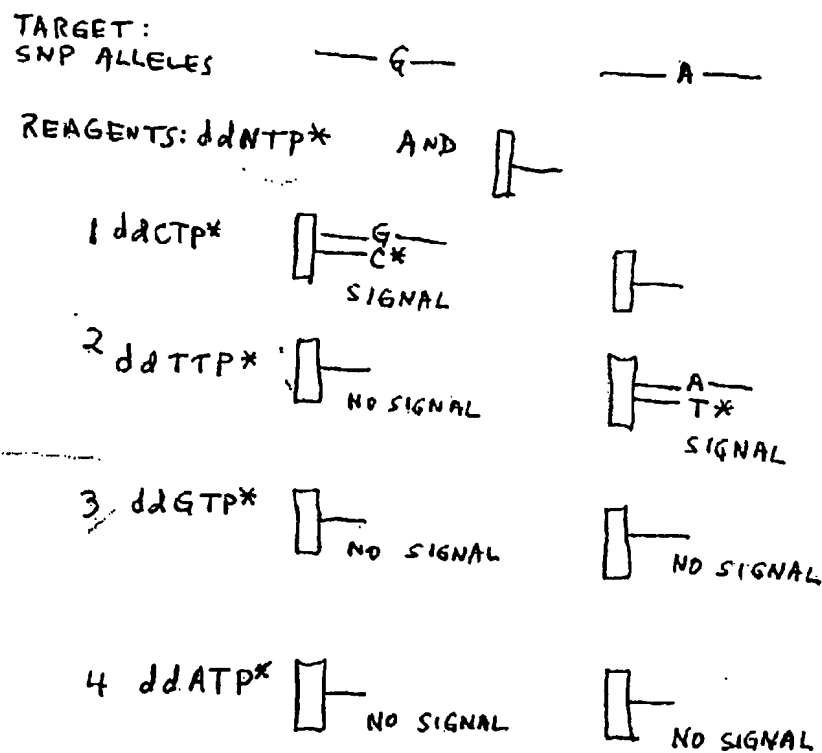 TARGET:
SNP ALLELES G A
REAGENTS: ddNTP* AND
1 ddCTP* G
C*
SIGNAL
2 ddTTP* A
NO SIGNAL T*
SIGNAL
3 ddGTP*
NO SIGNAL NO SIGNAL
4 ddATP*
NO SIGNAL NO SIGNAL